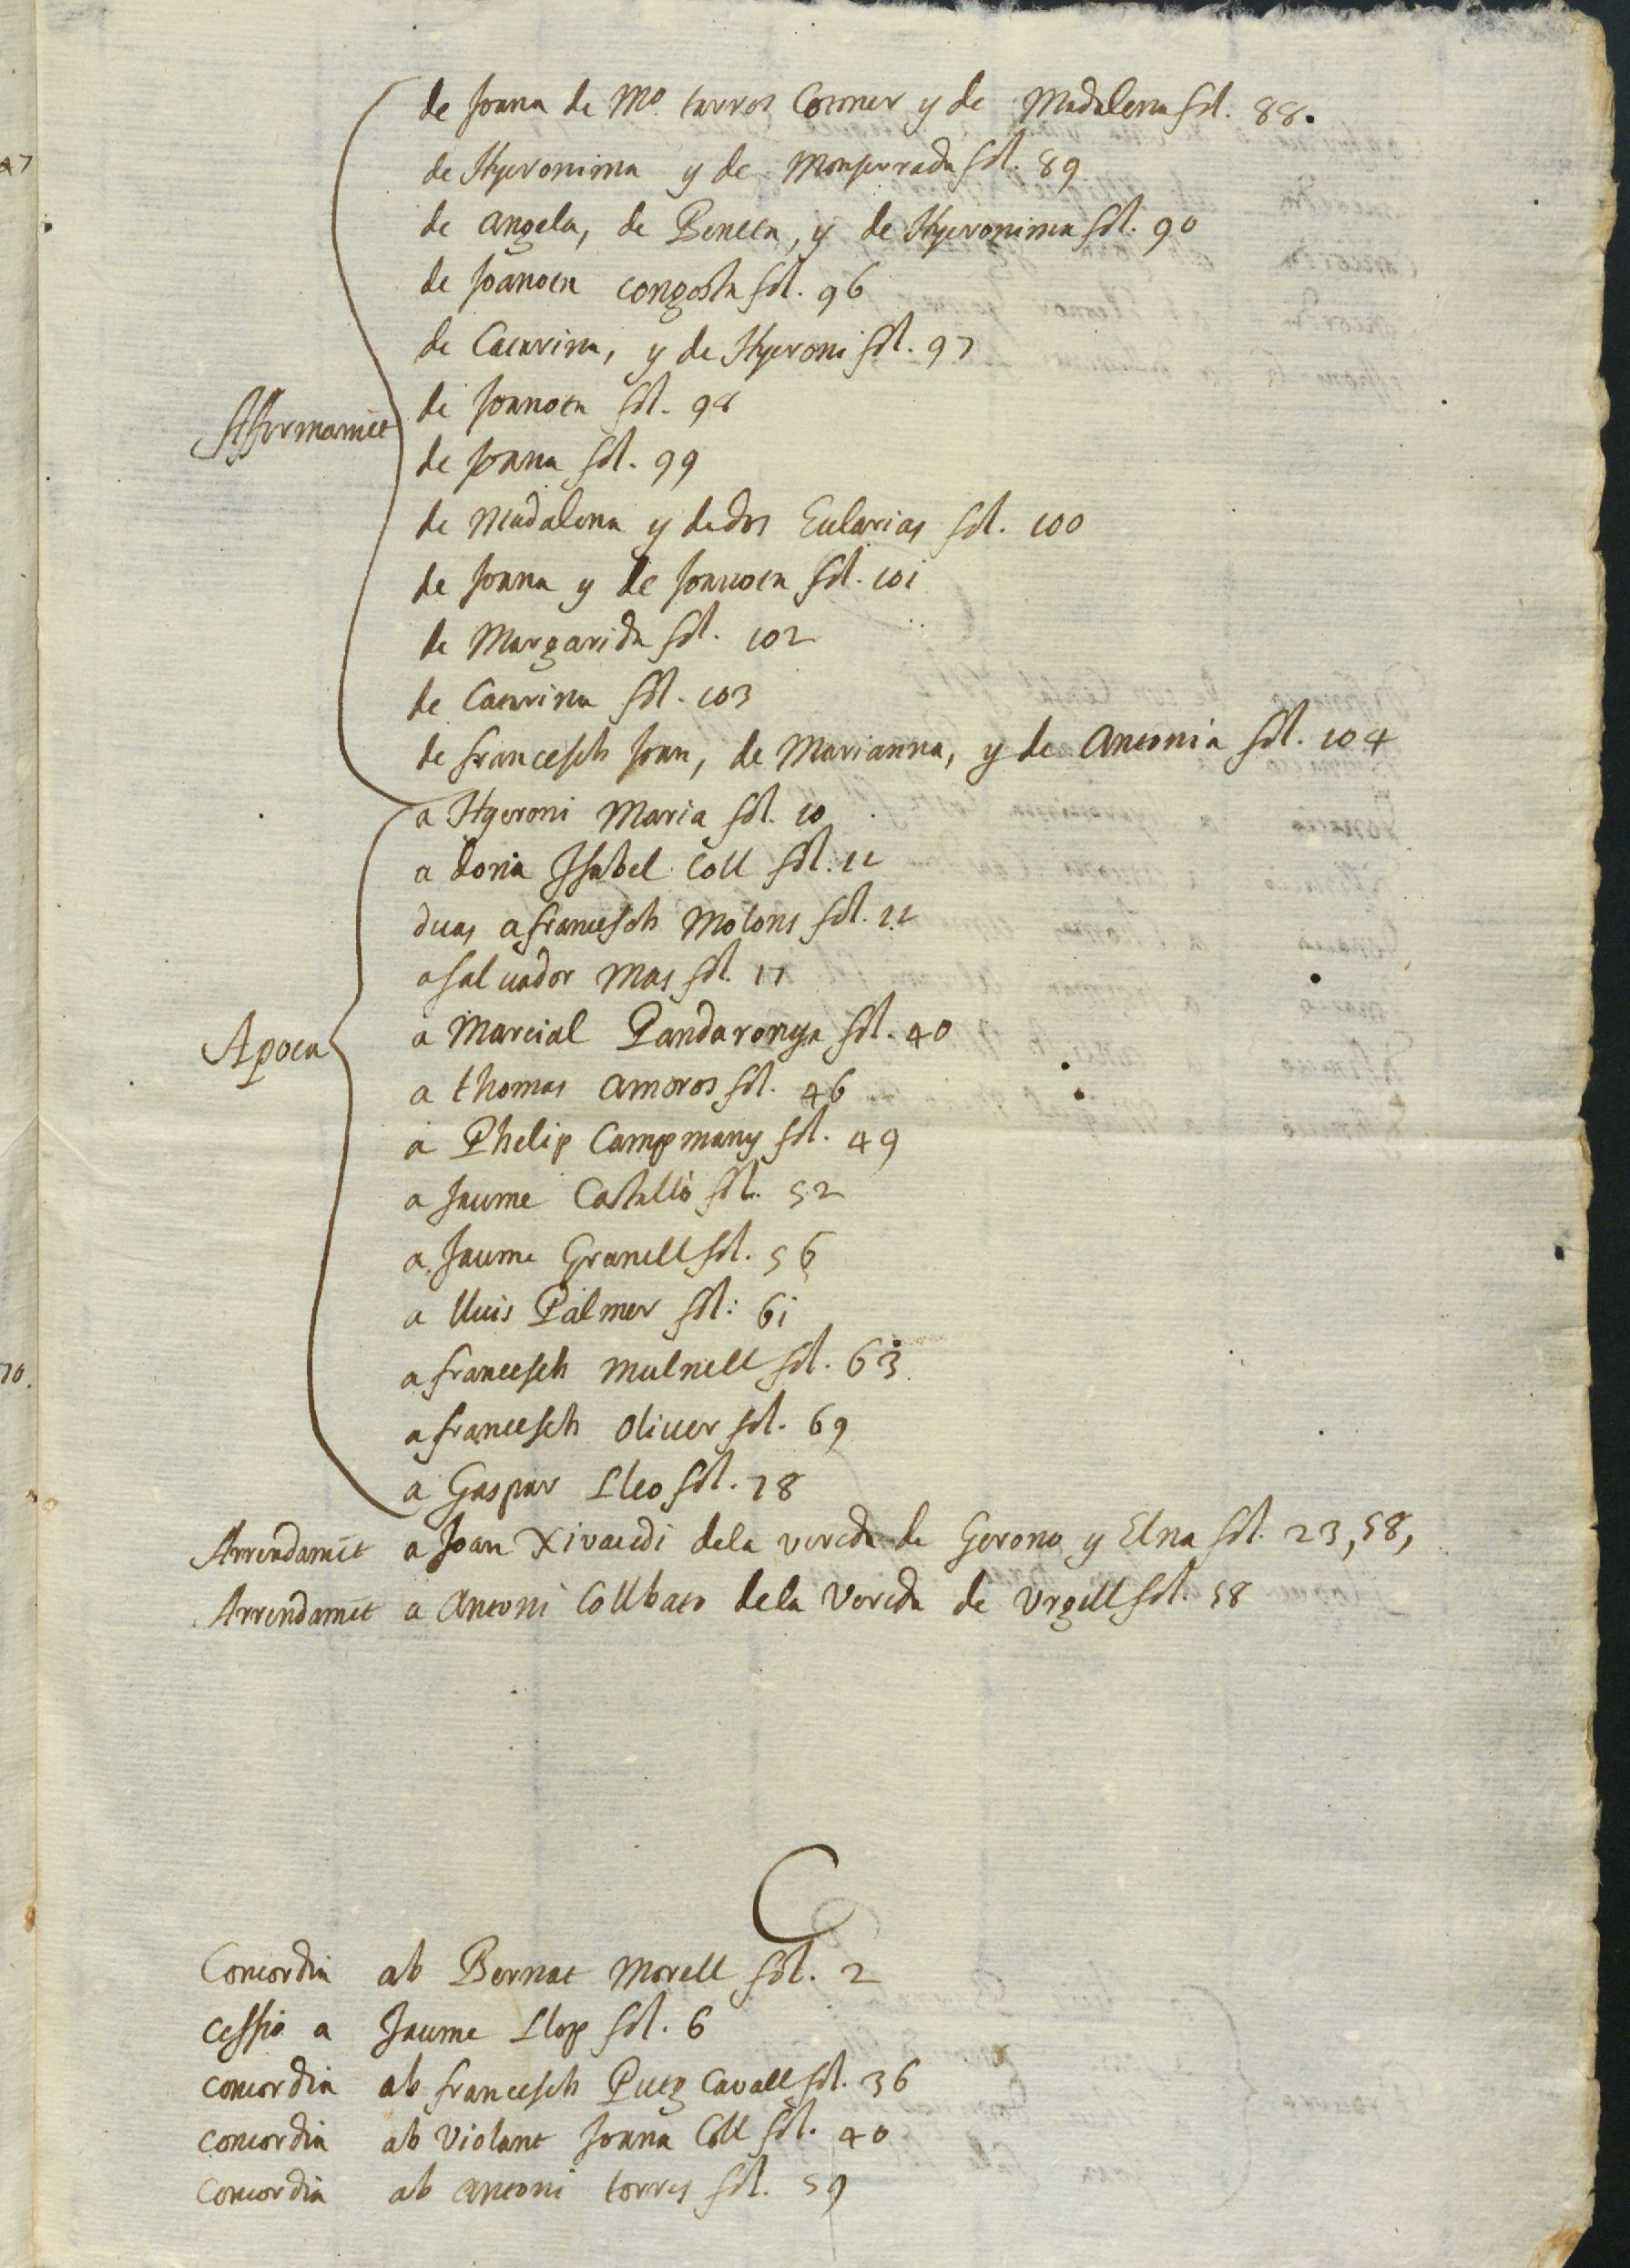 de Joana de Mº. tarros Corner y de Madalena fol. 88.
47
de Hyeronima y de Monserrada fol. 89
de Angela, de Beneta, y de Hyeronima fol. 90
de Joanota congosta fol. 96
de Catarina, y de Hyeroni fol. 97
Affermamēt
de Joanota fol. 98
de Joana fol. 99
de Madalena y de dos Eularias fol. 100
de Joana y de Joanota fol. 101
de Margarida fol. 102
de Catarina fol. 103
de francesch Joan, de Marianna, y de Antonia fol. 104
a Hyeroni Maria fol. 10
a dona Isabel Coll fol. 11
duas a francesch Molons fol. 12
a salvador Mas fol. 17
Apoca
a Marcial Pandaronga fol. 40
a thomas Amoros fol. 46
a Phelip Campmany fol. 49
a Jaume Castello fol. 52
a Jaume Granell fol. 56
a lluis Palmer fol: 61
a francesch Mulnell fol. 63
70.
a francesch Oliver fol. 69
a Gaspar Lleo fol. 78
Arrendamēt a Joan Xivaudi dela vereda de Gerona y Elna fol. 23, 58,
Arrendamēt a Antoni Collbato dela Vereda de Urgell fol. 58
C
Concordia ab Bernat Morell fol. 2
cessio a Jaume Llop fol. 6
concordia ab francesch Puig Cavall fol. 36
concordia ab Violant Joana Coll fol. 40
Concordia ab Antoni torres fol. 59